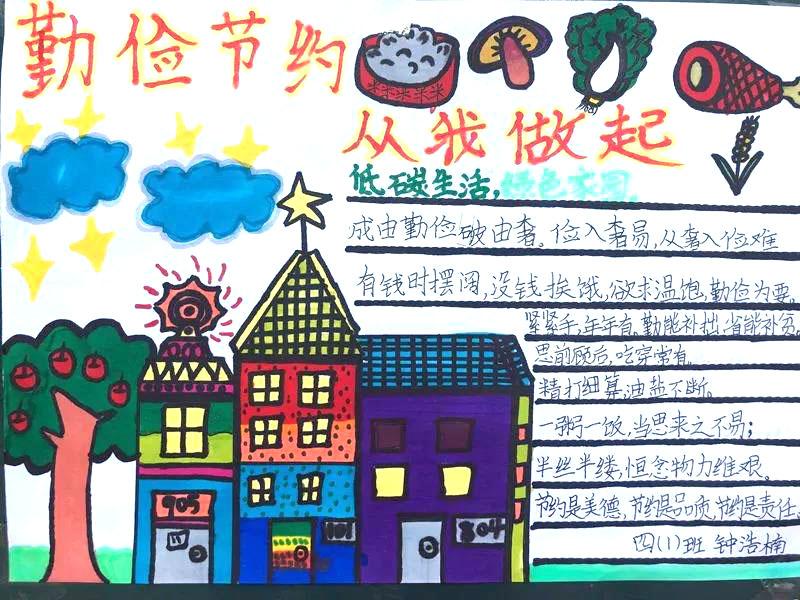 勤俭节约
从我做起
低碳生活,绿色家园。
成由勤俭破由奢。俭入奢易,从奢入俭难
有钱时摆阔,没钱挨饿,欲求温饱,勤俭为要,
紧紧手,年年有,勤能补拙,省能补贫
思前顾后,吃穿常有。
精打细算,油盐不断。
一粥一饭,当思来之不易;
半丝半缕,恒念物力维艰。
节约是美德,节约是品质,节约是责任.
四(1)班 钟浩楠
905
101
804